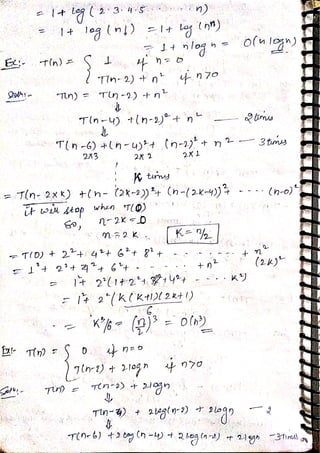 = 1 + log ( 2·3·4·5 ..... n)
= 1 + log (n!) = 1 + log (nⁿ)
= 1 + n log n = O(n log n)
Ex:- T(n) = { 1 if n=0
T(n-2) + n² if n>0
Soln:- T(n) = T(n-2) + n²
⇓
T(n-4) + (n-2)² + n² — 2 times
⇓
T(n-6) + (n-4)² + (n-2)² + n² — 3 times
2x3 2x2 2x1
K times
= T(n-2xk) + (n-(2k-2))² + (n-(2k-4))² + .... (n-0)²
it will stop when T(0)
So, n-2k = 0
n = 2k K = n/2
= T(0) + 2² + 4² + 6² + 8² + ...... + n²
= 1² + 2² + 4² + 6² + ..... + n² (2k)²
= 1 + 2²(1 + 2² + 3² + 4² + .... k²)
= 1 + 2² (k(k+1)(2k+1)
6
= K³/6 = (n/2)³ = O(n³)
Ex:- T(n) = { 0 if n=0
T(n-2) + 2logn if n>0
Soln:- T(n) = T(n-2) + 2logn
⇓
T(n-4) + 2log(n-2) + 2logn — 2
⇓
T(n-6) + 2log(n-4) + 2log(n-2) + 2logn — 3 times